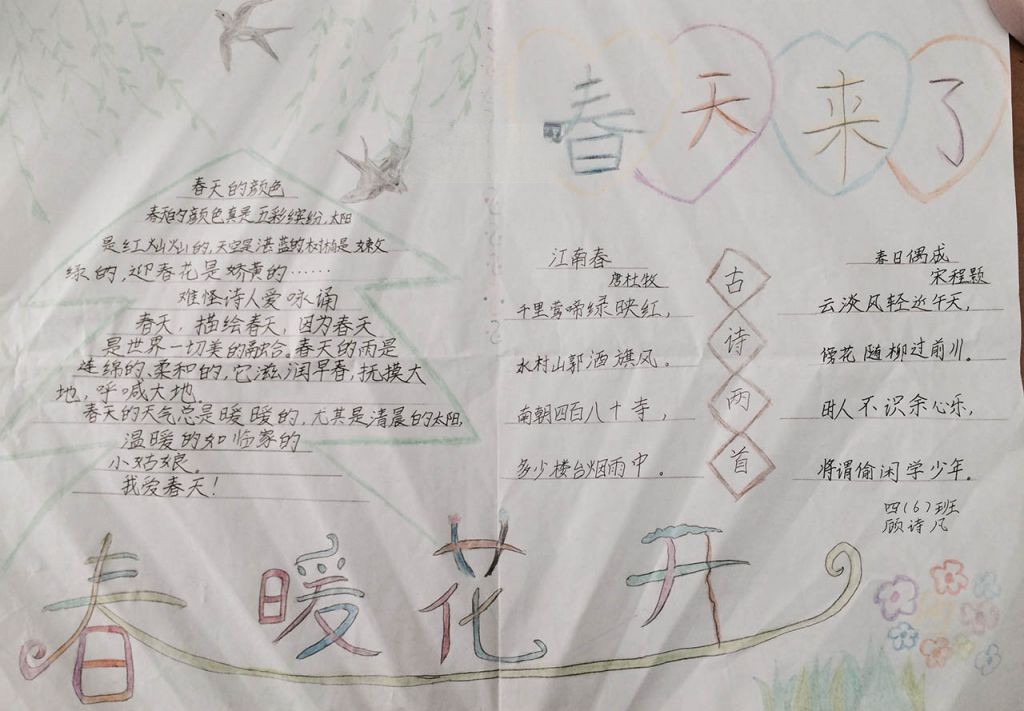 春天来了
春天的颜色
春天的颜色真是五彩缤纷,太阳
是红灿灿的,天空是湛蓝的树梢是嫩
绿的,迎春花是娇黄的……
难怪诗人爱咏诵
春天,描绘春天,因为春天
是世界一切美的融合。春天的雨是
连绵的、柔和的,它滋润早春,抚摸大
地,呼喊大地。
春天的天气总是暖暖的,尤其是清晨的太阳,
温暖的如临家的
小姑娘。
我爱春天!
古诗两首
江南春
唐杜牧
千里莺啼绿映红,
水村山郭酒旗风。
南朝四百八十寺,
多少楼台烟雨中。
春日偶成
宋程颢
云淡风轻近午天,
傍花随柳过前川。
时人不识余心乐,
将谓偷闲学少年。
四(6)班
顾诗凡
春暖花开